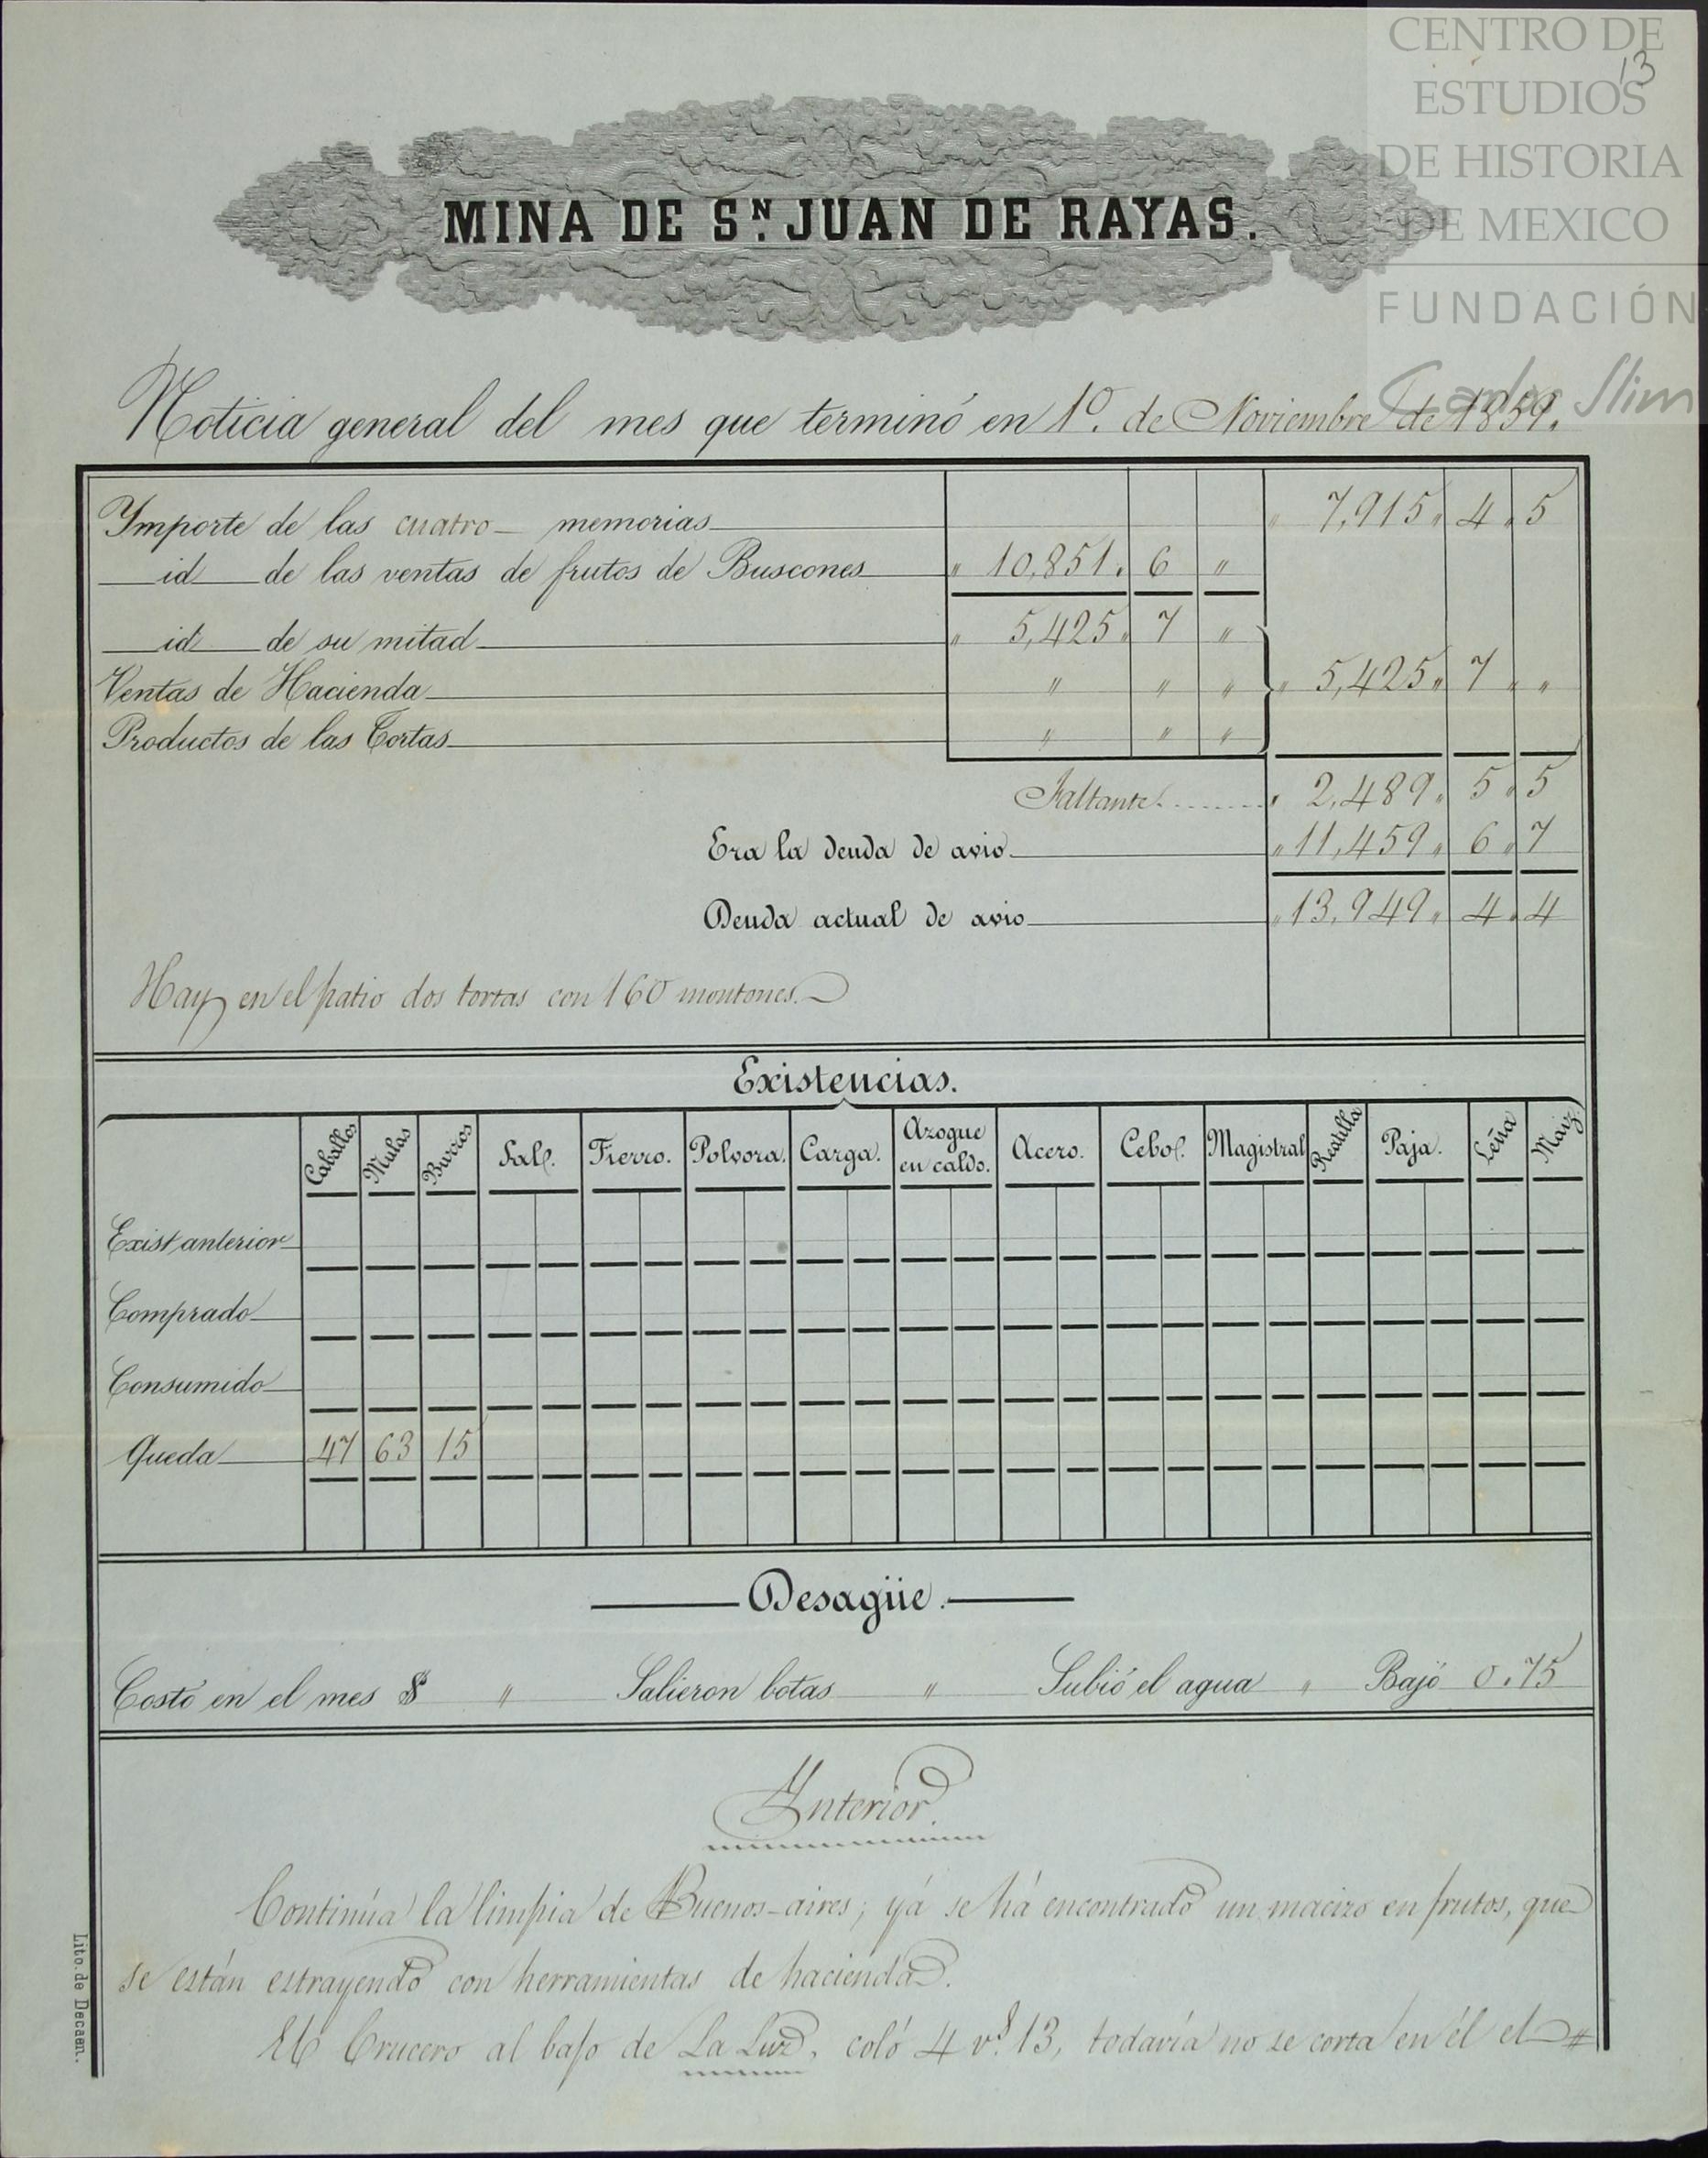 CENTRO DE
ESTUDIOS
DE HISTORIA
DE MEXICO
FUNDACIÓN
Carlos Slim
13
MINA DE Sⁿ. JUAN DE RAYAS.
Noticia general del mes que terminó en 1º. de Noviembre de 1859.
Ymporte de las cuatro memorias " 7,915 " 4 " 5
id de las ventas de frutos de Buscones " 10,851. 6 "
id de su mitad " 5,425 " 7 "
Ventas de Hacienda " " " " 5,425 " 7 " "
Productos de las Tortas " " "
Faltante........ " 2,489 " 5 " 5
Era la deuda de avio " 11,459 " 6 " 7
Deuda actual de avio " 13,949 " 4 " 4
Hay en el patio dos tortas con 160 montones.
Existencias.
Caballos Mulas Burros Sal. Fierro. Polvora. Carga. Azogue en caldo. Acero. Cebo. Magistral Rastilla Paja. Leña Maiz.
Exist anterior
Comprado
Consumido
Queda 47 63 15
Desagüe.
Costó en el mes $ " Salieron botas " Subió el agua " Bajó 0.75
Ynterior.
Continúa la limpia de Buenos-aires; yá se há encontrado un macizo en frutos, que
se están estrayendo con herramientas de hacienda.
El Crucero al bajo de La Luz, coló 4 vs. 13, todavía no se corta en él el #
Lito. de Decaen.